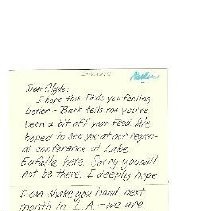 Dear Clyde:
I hope this finds you feeling
better - Barb tells me you've
been a bit off your feed. We
hoped to see you at our region-
al conference at Lake
Eufalla here. Sorry you will
not be there. I deeply hope
I can shake your hand next
month in L.A. - we are